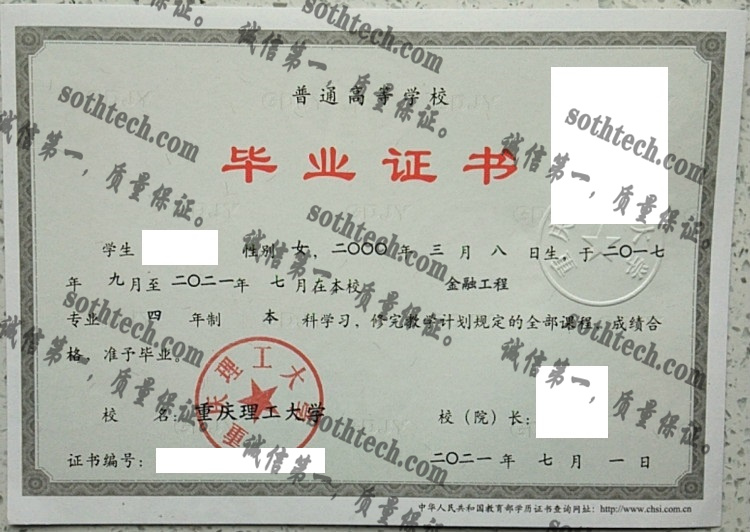 普通高等学校
毕业证书
学生 性别 女，二〇〇〇年 三 月 八 日生，于二〇一七
年 九月至 二〇二一年 七 月在本校 金融工程
专业 四 年制 本 科学习，修完教学计划规定的全部课程，成绩合
格，准予毕业。
校 名：重庆理工大学 校（院）长：
证书编号： 二〇二一年 七 月 一 日
中华人民共和国教育部学历证书查询网址：http://www.chsi.com.cn
重庆理工大学
sothtech.com
诚信第一，质量保证。
sothtech.com
诚信第一，质量保证。
sothtech.com
诚信第一，质量保证。
sothtech.com
诚信第一，质量保证。
sothtech.com
诚信第一，质量保证。
sothtech.com
诚信第一，质量保证。
sothtech.com
诚信第一，质量保证。